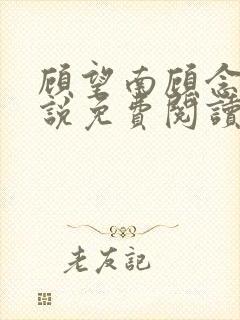 顾望南顾念
說免費閱讀
老友記